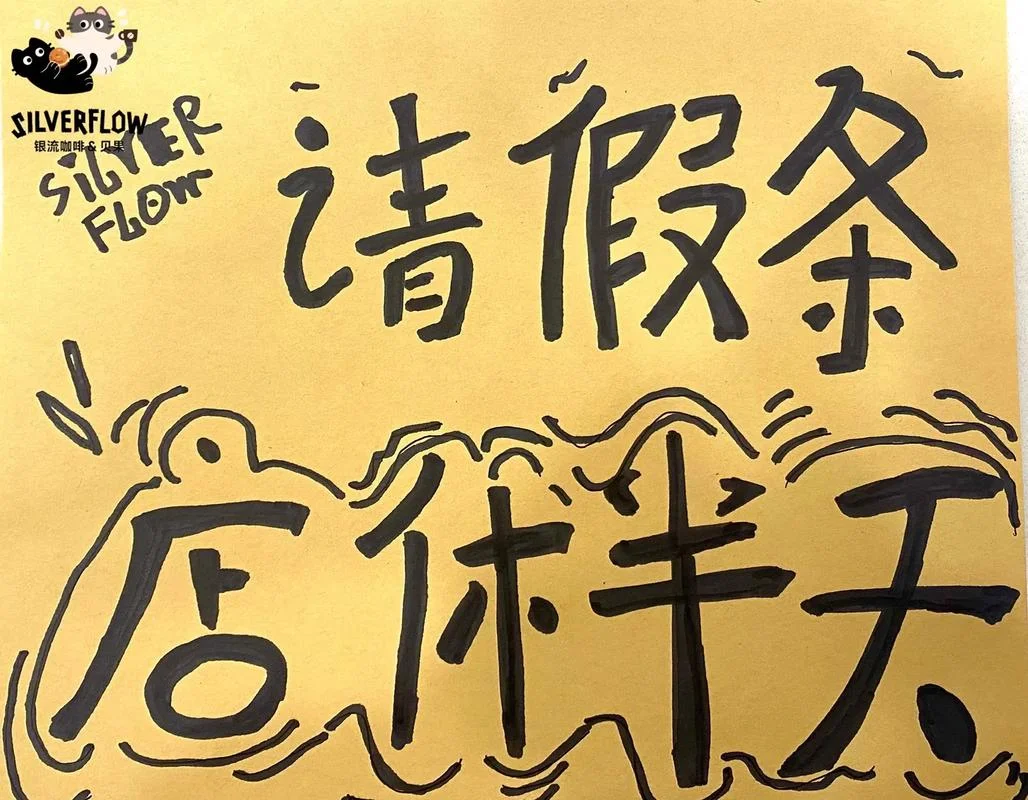 SILVERFLOW
银流咖啡&贝果
SILVER
FLOW
请假条
店休半天